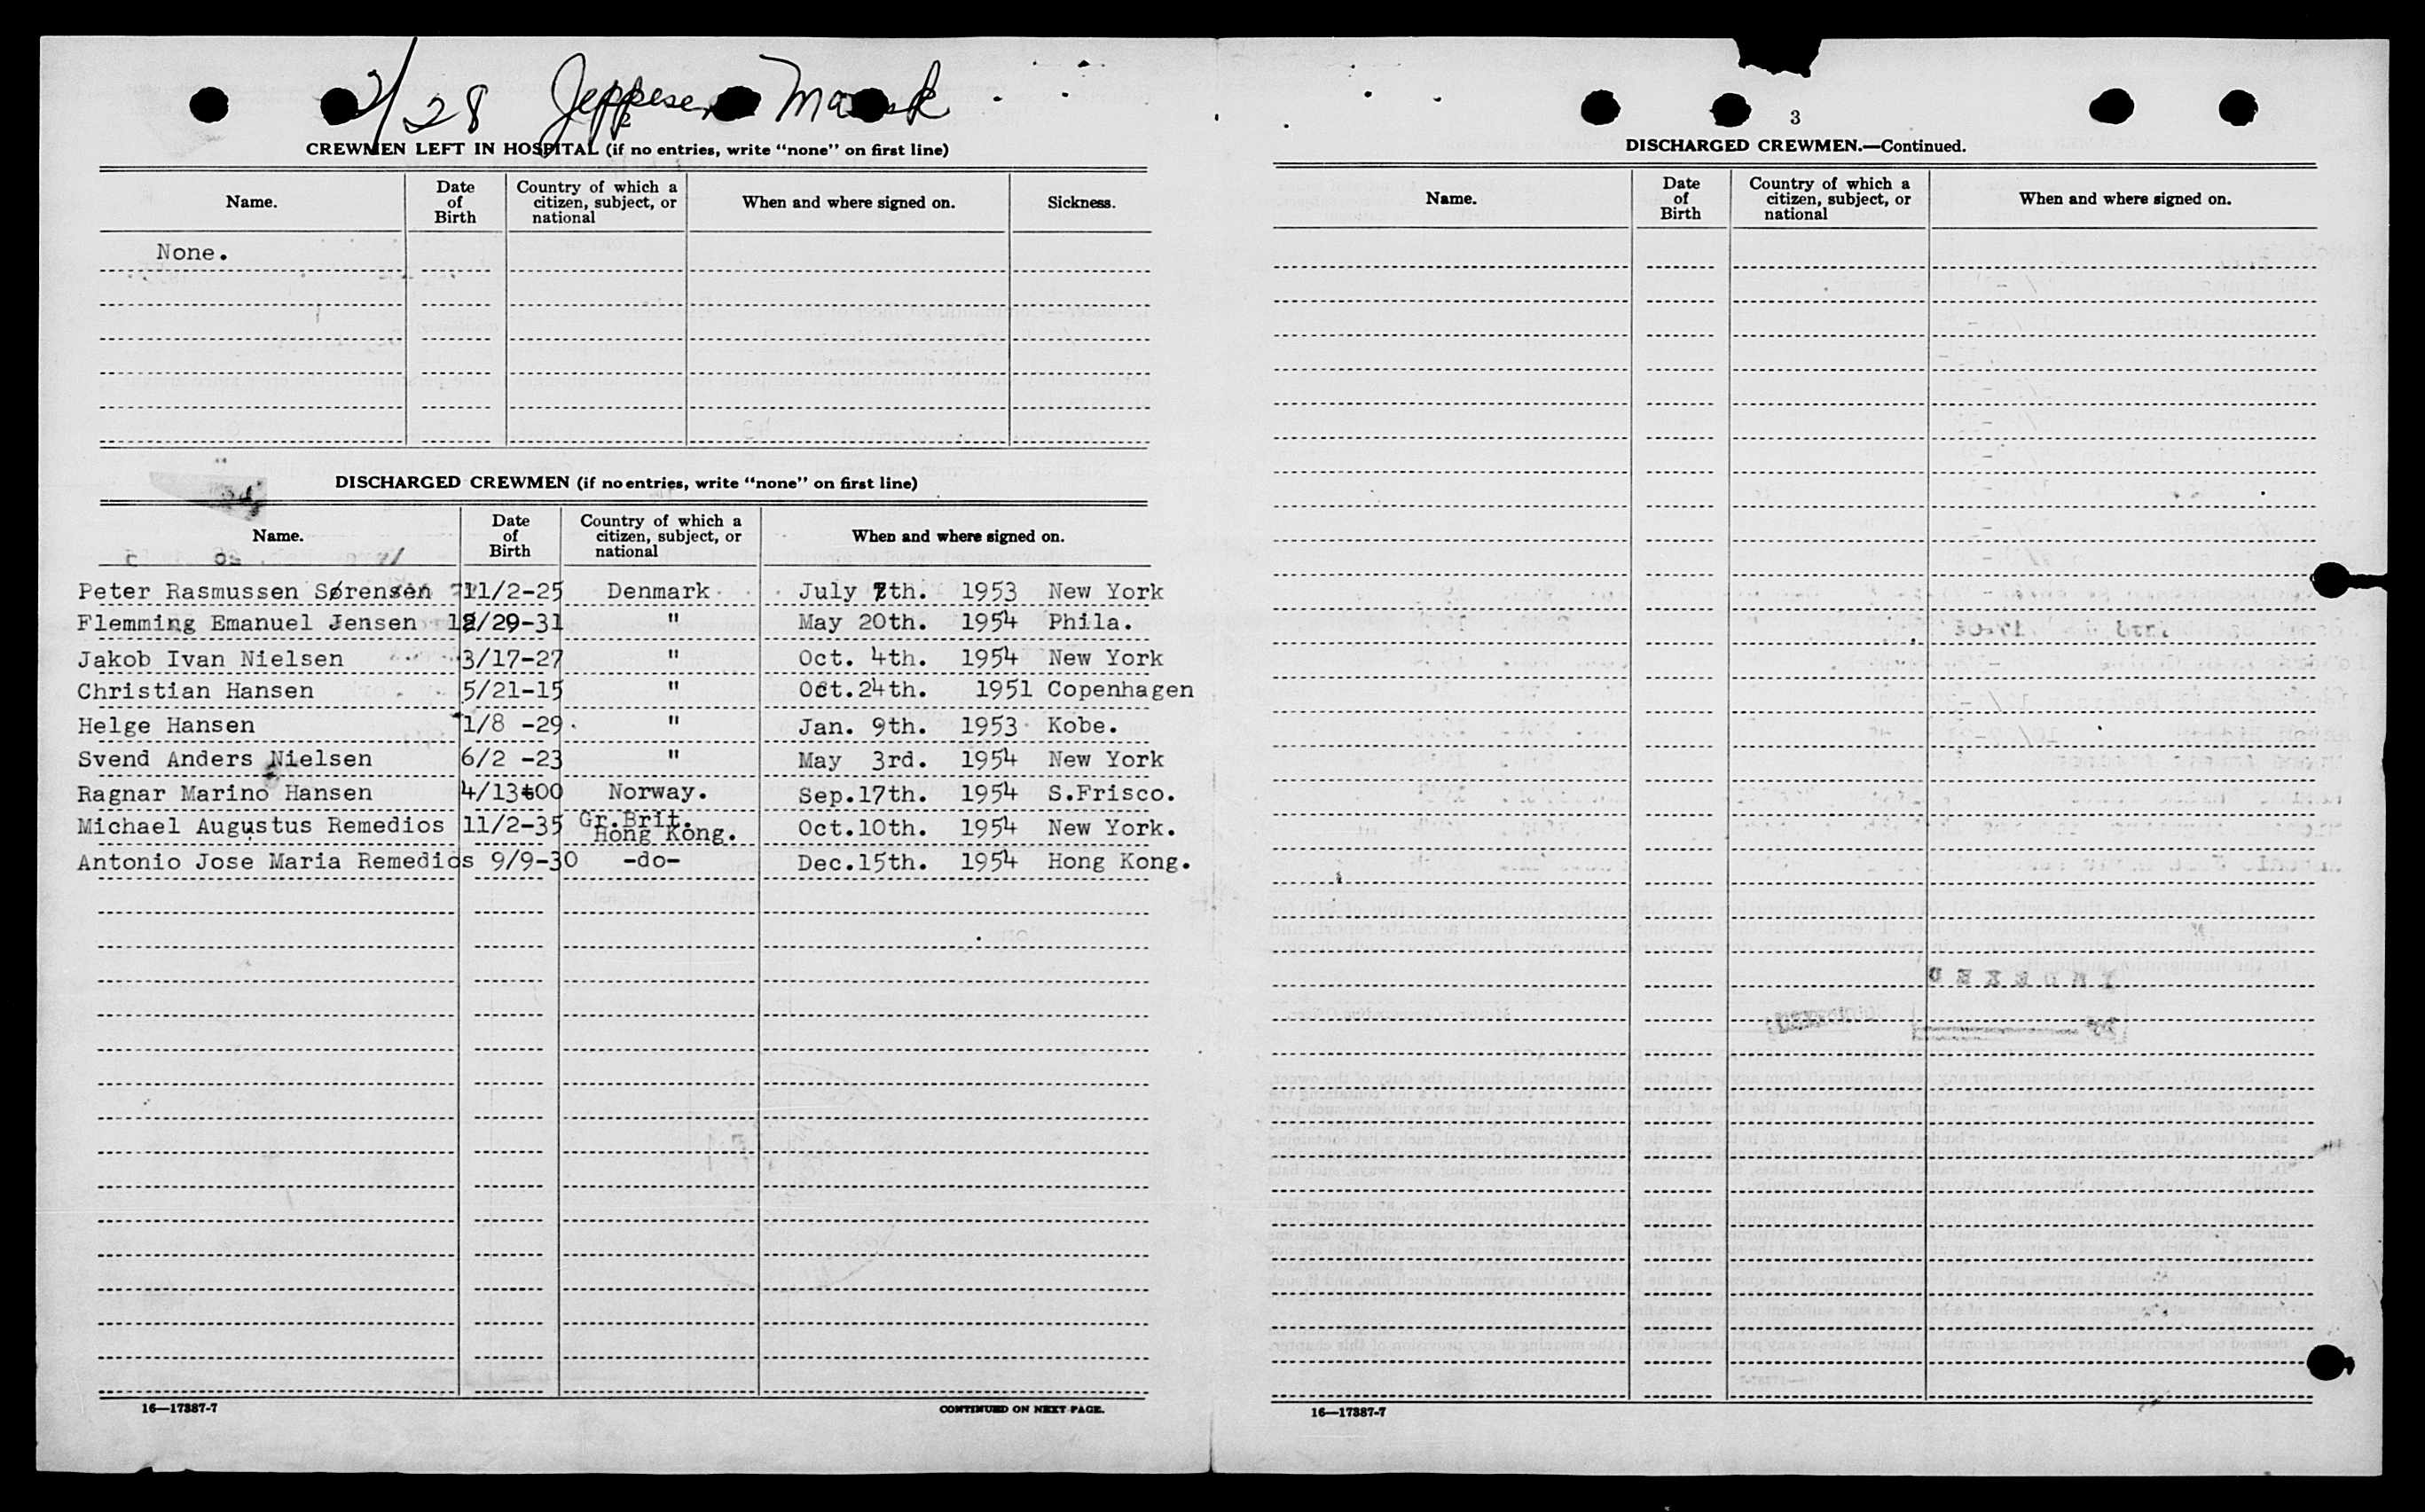 2/28 Jeppesen Maersk
2
CREWMEN LEFT IN HOSPITAL (if no entries, write “none” on first line)
Name. Date of Birth Country of which a citizen, subject, or national When and where signed on. Sickness.
None.
DISCHARGED CREWMEN (if no entries, write “none” on first line)
Name. Date of Birth Country of which a citizen, subject, or national When and where signed on.
Peter Rasmussen Sørensen 11/2-25 Denmark July 7th. 1953 New York
Flemming Emanuel Jensen 12/29-31 " May 20th. 1954 Phila.
Jakob Ivan Nielsen 3/17-27 " Oct. 4th. 1954 New York
Christian Hansen 5/21-15 " Oct.24th. 1951 Copenhagen
Helge Hansen 1/8 -29 " Jan. 9th. 1953 Kobe.
Svend Anders Nielsen 6/2 -23 " May 3rd. 1954 New York
Ragnar Marino Hansen 4/13-00 Norway. Sep.17th. 1954 S.Frisco.
Michael Augustus Remedios 11/2-35 Gr.Brit. Hong Kong. Oct.10th. 1954 New York.
Antonio Jose Maria Remedios 9/9-30 -do- Dec.15th. 1954 Hong Kong.
16—17387-7 CONTINUED ON NEXT PAGE.
3
DISCHARGED CREWMEN.—Continued.
Name. Date of Birth Country of which a citizen, subject, or national When and where signed on.
16—17387-7